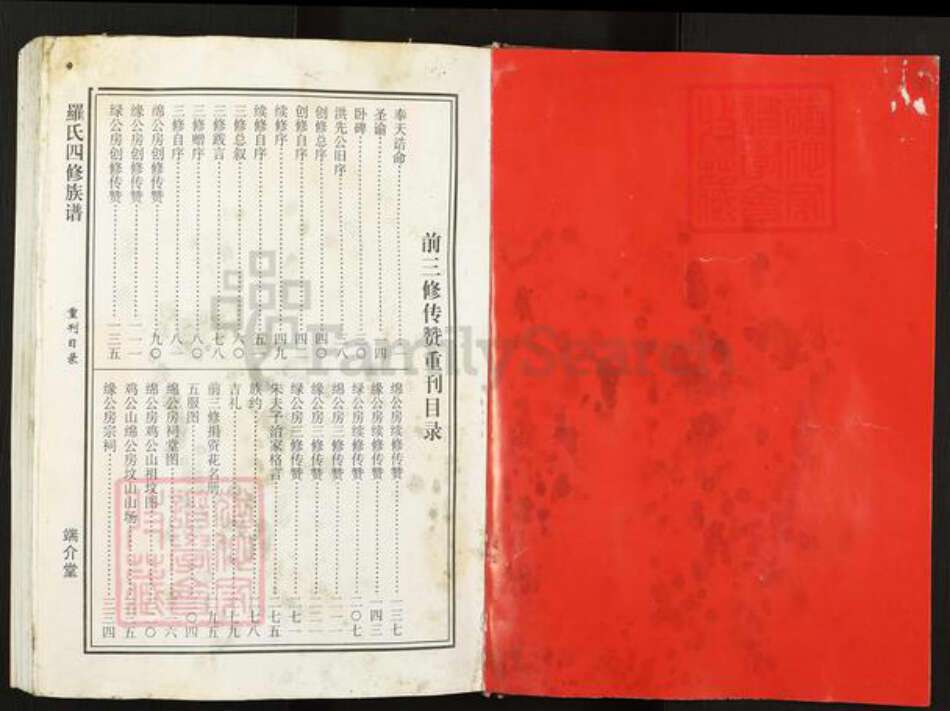 前三修传赞重刊目录
奉天诰命
圣谕 四
卧碑 二〇
洪先公旧序 三八
创修总序 四〇
创修自序 四四
续修序 四九
续修自序 五
三修总叙 六〇
三修践言 七八
三修赠序 八〇
三修自序 八
绵公房创修传赞 九〇
缘公房创修传赞 一一一
绿公房创修传赞 一三五
绵公房续修传赞 一三七
缘公房续修传赞 一四三
绿公房续修传赞 二〇七
绵公房三修传赞
缘公房三修传赞
绿公房三修传赞 七一
朱夫子治家格言 七五
族约 七八
吉礼 七九
前三修捐资花名册 九五
五服图 〇四
绵公房祠堂图 六
绵公房鸡公山祖坟图
鸡公山绵公房坟山山场
缘公房宗祠 三三四
羅氏四修族谱
重刊目录
端介堂
FamilySearch